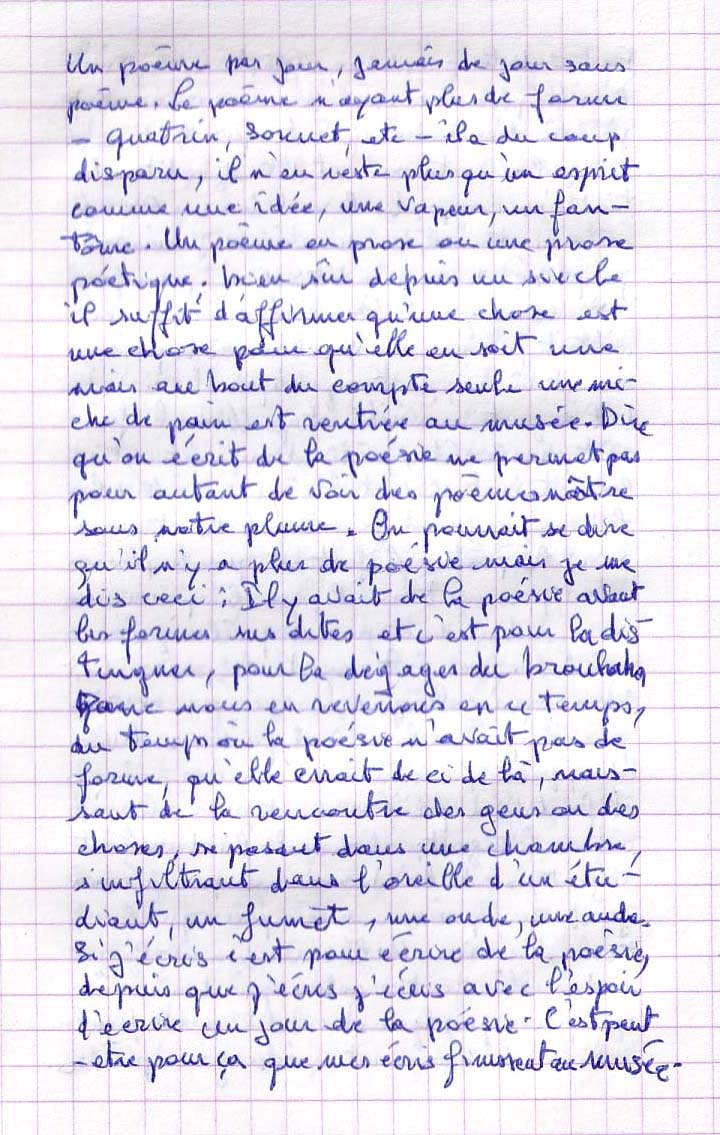 Un poème par jour, jamais de jour sans
poème. Le poème n'ayant plus de forme
- quatrin, sonnet, etc - il a du coup
disparu, il n'en reste plus qu'un esprit
comme une idée, une vapeur, un fan-
tôme. Un poème en prose ou une prose
poétique. bien sûr depuis un siècle
il suffit d'affirmer qu'une chose est
une chose pour qu'elle en soit une
mais au bout du compte seule une mi-
che de pain est rentrée au musée. Dire
qu'on écrit de la poésie ne permet pas
pour autant de voir des poèmes naître
sous notre plume. On pourrait se dire
qu'il n'y a plus de poésie mais je me
dis ceci : Il y avait de la poésie avant
les formes sus dites et c'est pour la dis-
tinguer, pour la dégager du brouhaha
que nous en revenons en ce temps,
du temps où la poésie n'avait pas de
forme, qu'elle errait de ci de là, nais-
sant de la rencontre des gens ou des
choses, se posant dans une chambre,
s'infiltrant dans l'oreille d'un étu-
diant, un fumet, une onde, une aude.
Si j'écris c'est pour écrire de la poésie,
depuis que j'écris j'écris avec l'espoir
d'écrire un jour de la poésie. C'est peut
-etre pour ça que mes écris finissent au musée.